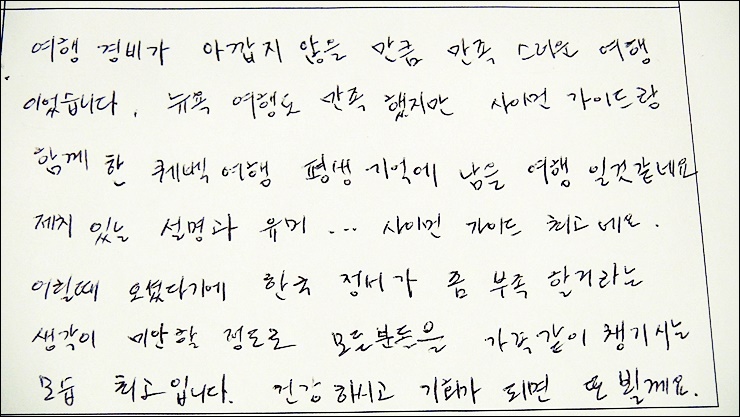 여행 경비가 아깝지 않을 만큼 만족 스러운 여행
이었습니다. 뉴욕 여행도 만족 했지만 사이먼 가이드랑
함께 한 퀘벡 여행 평생 기억에 남을 여행 일것같네요
재치 있는 설명과 유머 ... 사이먼 가이드 최고 네요.
어릴때 오셨다기에 한국 정서가 좀 부족 할거라는
생각이 미안할 정도로 모든분들을 가족같이 챙기시는
모습 최고입니다. 건강 하시고 기회가 되면 또 뵐께요.